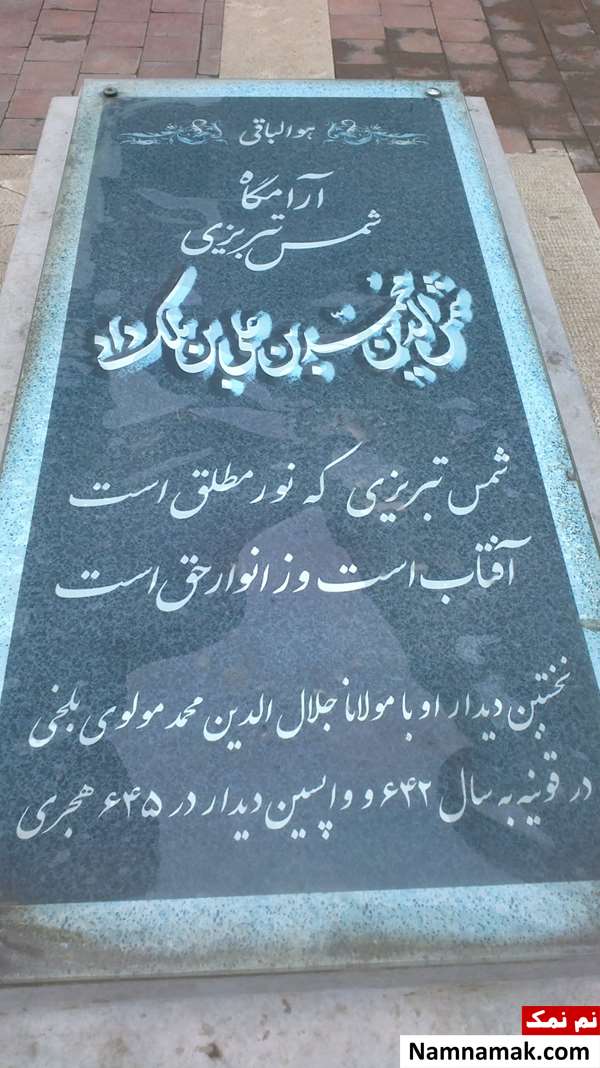 هوالباقی
آرامگاه
شمس تبریزی
شمس الدین محمد بن علی بن ملک داد
شمس تبریزی که نور مطلق است
آفتاب است و ز انوار حق است
نخستین دیدار او با مولانا جلال الدین محمد مولوی بلخی
در قونیه به سال ۶۴۲ و واپسین دیدار در ۶۴۵ هجری
نم نمک
Namnamak.com